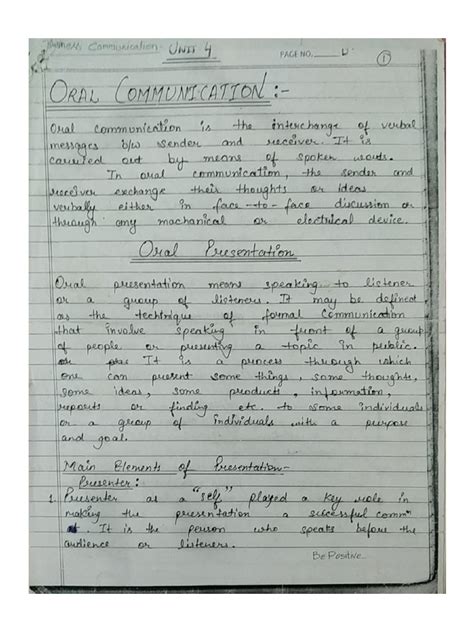 Business Communication - UNIT 4
PAGE NO.
①
ORAL COMMUNICATION :-
Oral communication is the interchange of verbal
messages b/w sender and receiver. It is
carried out by means of spoken words.
In oral communication, the sender and
receiver exchange their thoughts or ideas
verbally either in face-to-face discussion or
through any mechanical or electrical device.
Oral Presentation
Oral presentation means speaking to listener
or a group of listeners. It may be defined
as the technique of formal communication
that involve speaking in front of a group
of people or presenting a topic in public.
It is a process through which
one can present some things, some thoughts,
some ideas, some products, information,
reports or finding etc. to some individuals
or a group of individuals with a purpose
and goal.
Main Elements of Presentation-
Presenter:
1. Presenter as a "self" played a key role in
making the presentation a successful commⁿ
. It is the person who speaks before the
audience or listeners.
Be Positive..